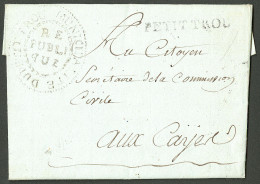 RE
PUBLI
QUE
PETIT TROU
Au Citoyen
Secrétaire de la Commission
Civile
aux Cayes